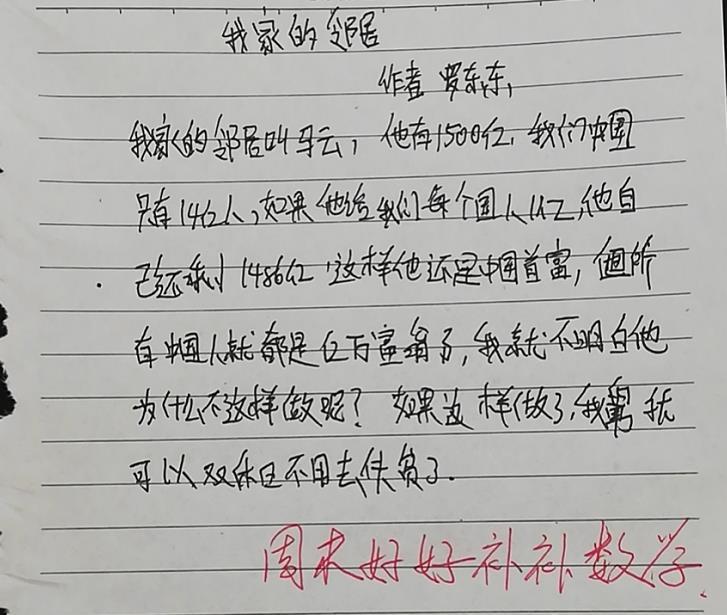 我家的邻居
作者 罗东东,
我家的邻居叫马云,他有1500亿,我们中国
只有14亿人,如果他给我们每个国人1亿,他自
己还剩1486亿,这样他还是中国首富,但所
有中国人就都是亿万富翁了,我就不明白他
为什么不这样做呢?如果这样做了,我舅就
可以双休日不用去快餐了.
周末好好补补数学.